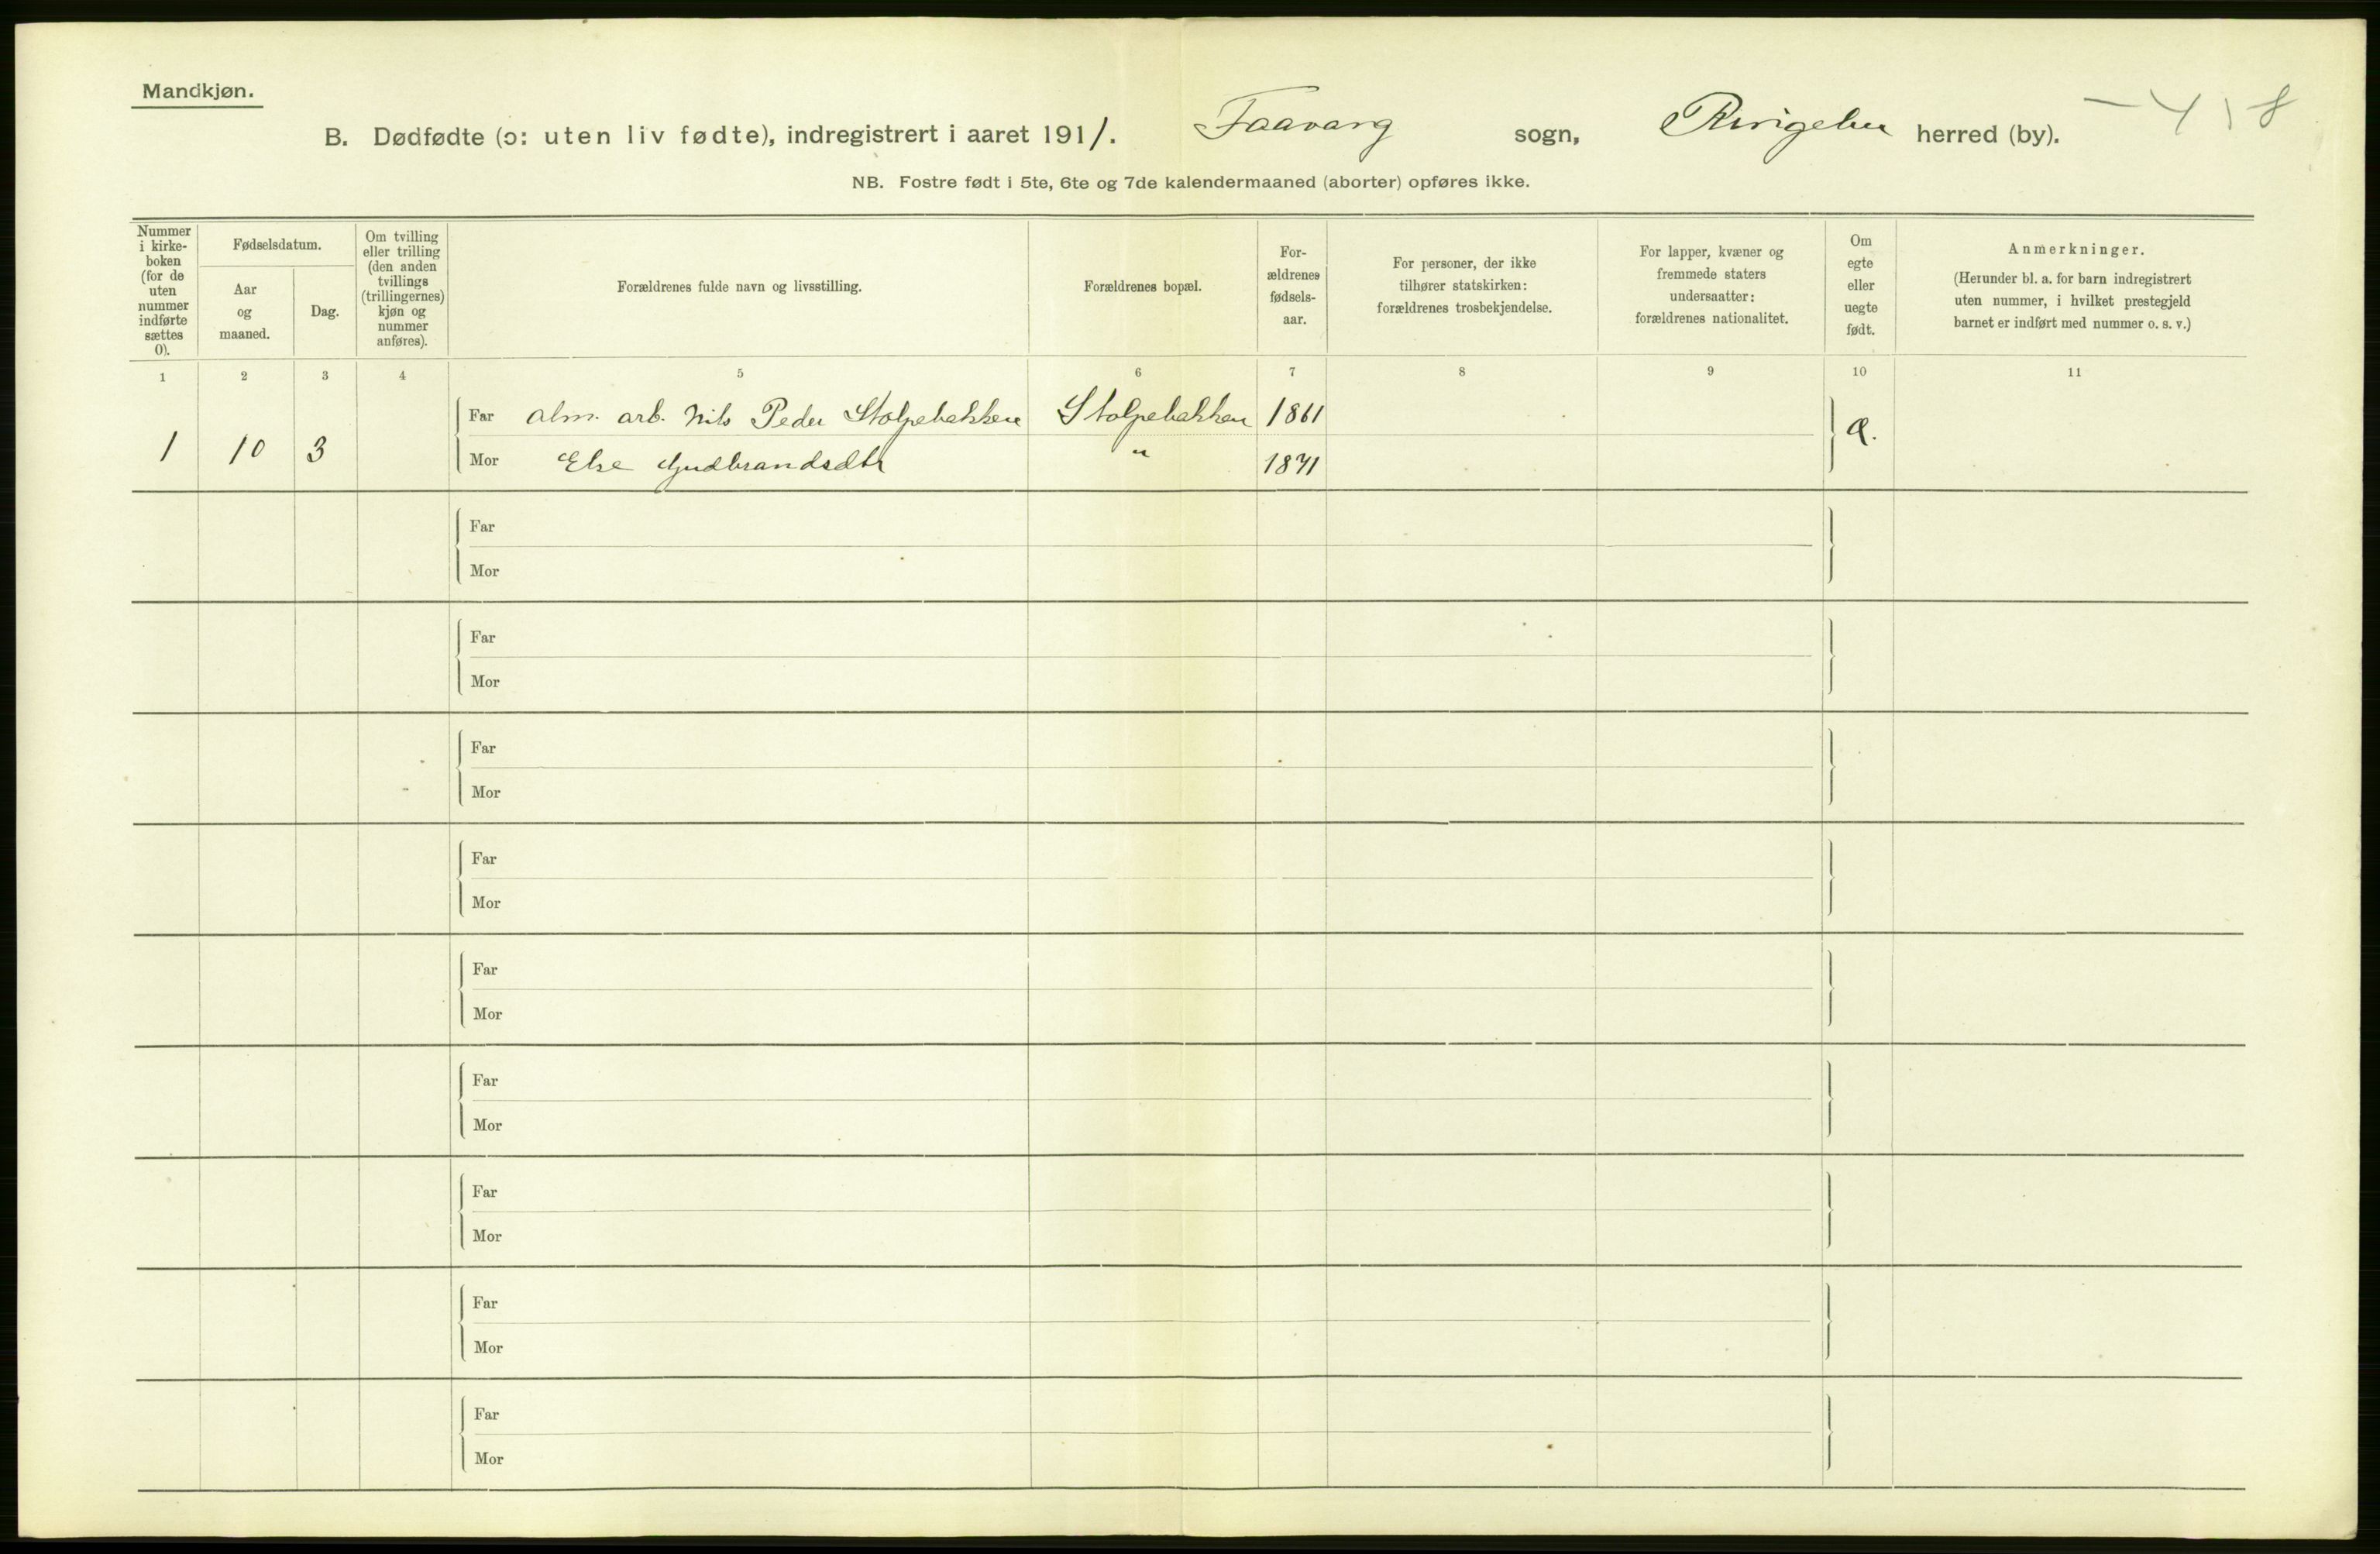 Mandkjøn.
B. Dødfødte (ɔ: uten liv fødte), indregistrert i aaret 1911. Faavang sogn, Ringebu herred (by).
NB. Fostre født i 5te, 6te og 7de kalendermaaned (aborter) opføres ikke.
Nummer i kirke-boken (for de uten nummer indførte sættes 0).
Fødselsdatum.
Aar og maaned.
Dag.
Om tvilling eller trilling (den anden tvillings (trillingernes) kjøn og nummer anføres).
Forældrenes fulde navn og livsstilling.
Forældrenes bopæl.
For-ældrenes fødsels-aar.
For personer, der ikke tilhører statskirken: forældrenes trosbekjendelse.
For lapper, kvæner og fremmede staters undersaatter: forældrenes nationalitet.
Om egte eller uegte født.
Anmerkninger.
(Herunder bl. a. for barn indregistrert uten nummer, i hvilket prestegjeld barnet er indført med nummer o. s. v.)
1 2 3 4 5 6 7 8 9 10 11
Far alm. arb. Nils Peder Stolpebakken Stolpebakken 1861
1 10 3 Mor Else Gudbrandsdtr " 1871
Far
Mor
Far
Mor
Far
Mor
Far
Mor
Far
Mor
Far
Mor
Far
Mor
Far
Mor
Far
Mor